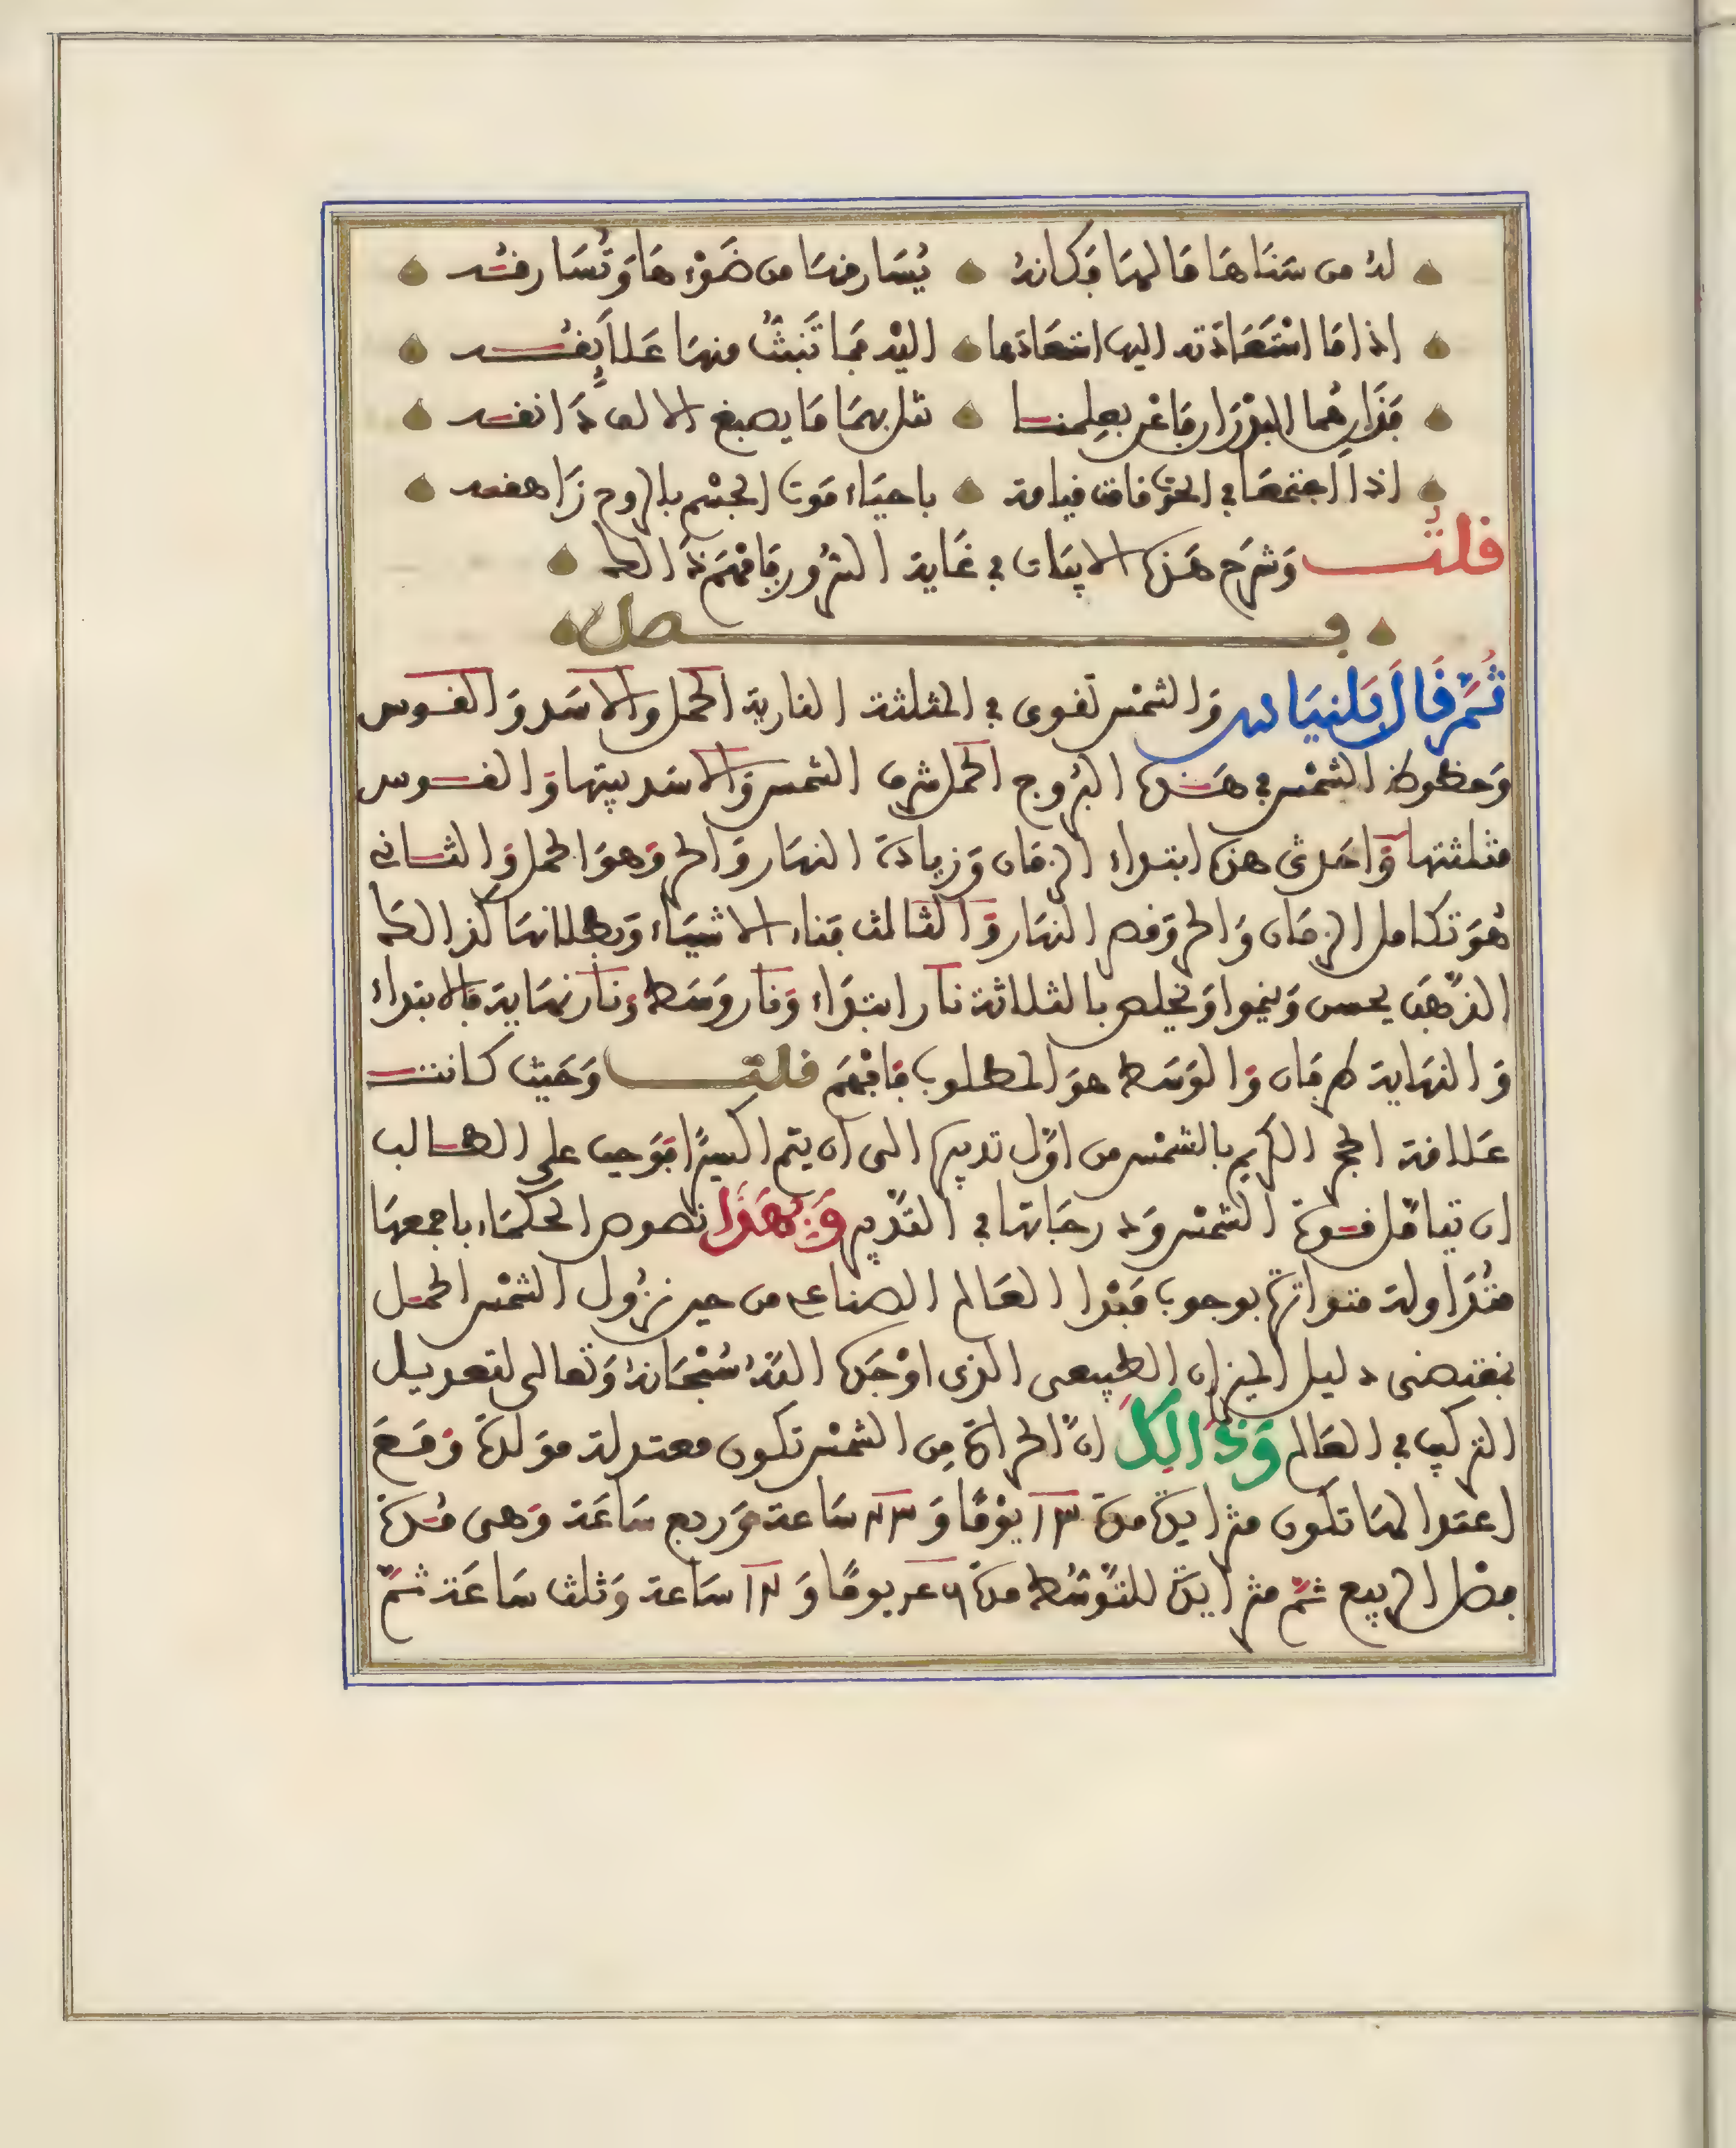 له من سناها ما لها فكانه يسارقها من ضوءها وتسارقه
اذا ما استعادته اليها استعادها اليه بما تبث منها علايقه
فذار هما البدرا رفاغن بعلمنا تنل بهما ما يصبغ الالف دانقه
اذا اجتمعا في الحق قامت قيامة باحياء موت الجسم بالروح زاهقه
قلت وشرح هذه الابيات في غاية الشرور فافهم ذالك
فصل
ثم قال بلنياس والشمس تقوى في المثلثة النارية الحمل والاسد والقوس
وحظوظ الشمس في هذه البروج الحمل شرف الشمس والاسد بيتها والقوس
مثلثتها واحدى هذه ابتداء الزمان وزيادة النهار والحر وهو الحمل والثاني
هو تكامل الزمان والحر وقصر النهار والثالث فناء الاشياء وبطلانها كذالك
الذهب يحسن وينموا ويخلص بالثلاثة نار ابتداء ونار وسط ونار نهاية فالابتداء
والنهاية طرفان والوسط هو المطلوب فافهم قلت وحيث كانت
علاقة الحجر الكريم بالشمس من اول تدبيره الى ان يتم اكسيرا فوجب على الطالب
ان يتامل قوة الشمس ودرجاتها في التدبير وبهذا نصوص الحكماء باجمعها
متداولة متواترة بوجوب مبدا العالم الصناعي من حين نزول الشمس الحمل
بمقتضى دليل الميزان الطبيعي الذي اوجده الله سبحانه وتعالى لتعديل
التركيب في العالم وذالك ان الحرارة من الشمس تكون معتدلة مولدة ومع
اعتدالها تكون متزايدة مدة يوما و ساعة وربع ساعة وهى مدة
فصل الربيع ثم متزايدة للتوسط مدة يوما و ساعة وثلث ساعة ثم